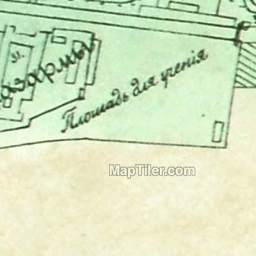 31.
казармы
Площадь для ученія
MapTiler.com